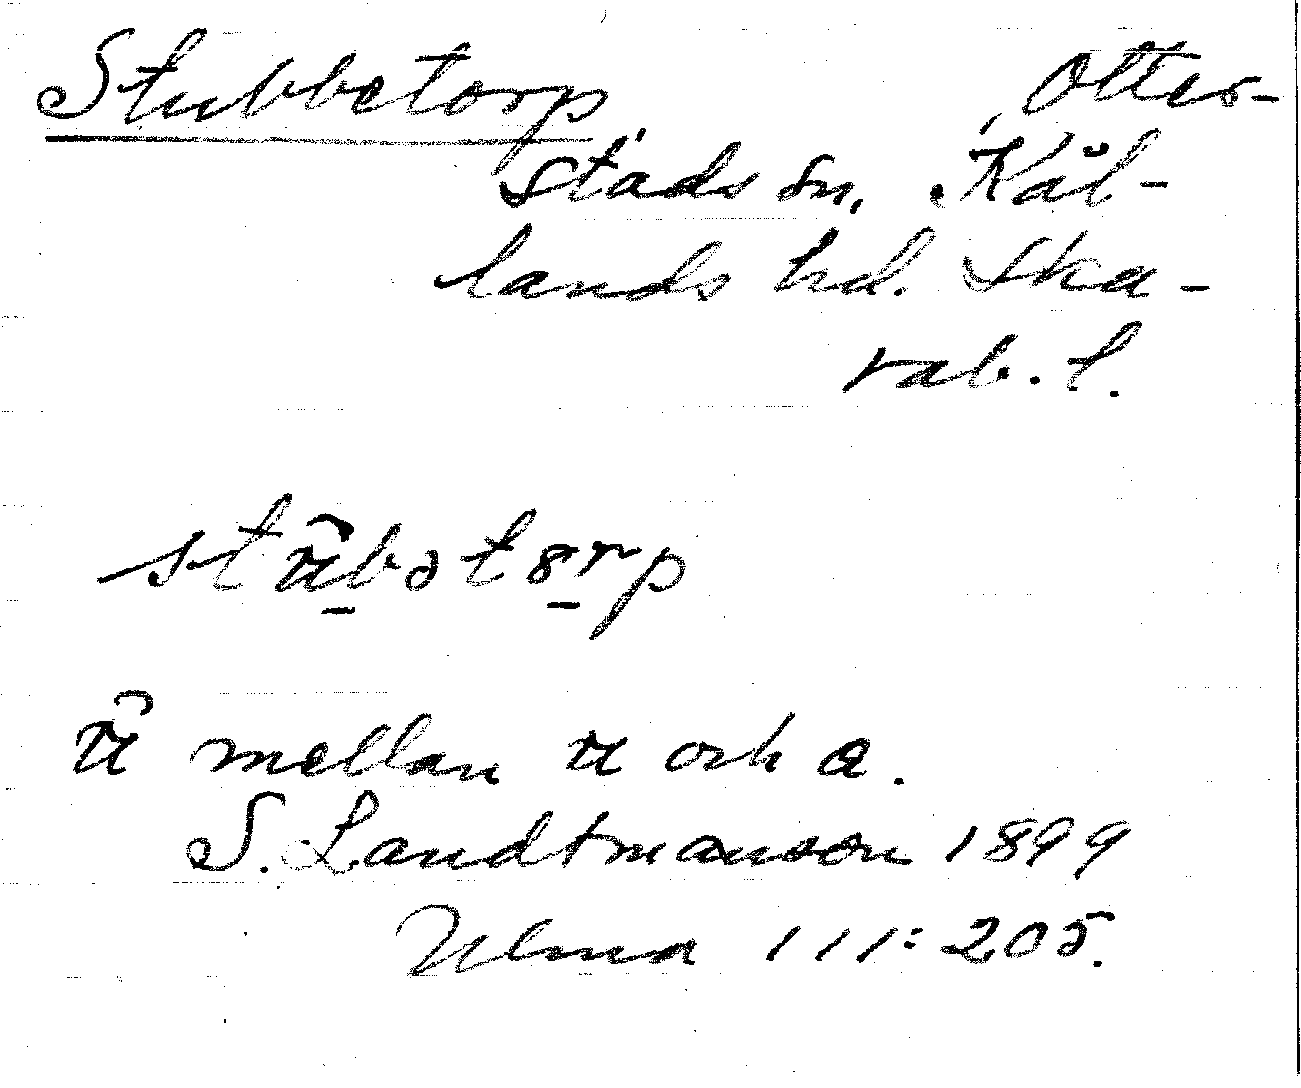 Stubbetorp Otter-
stads sn. Kål-
lands hd. Ska-
rab. l.
mellan u och a.
S. Landtmanson 1899
Ulma 111:205.